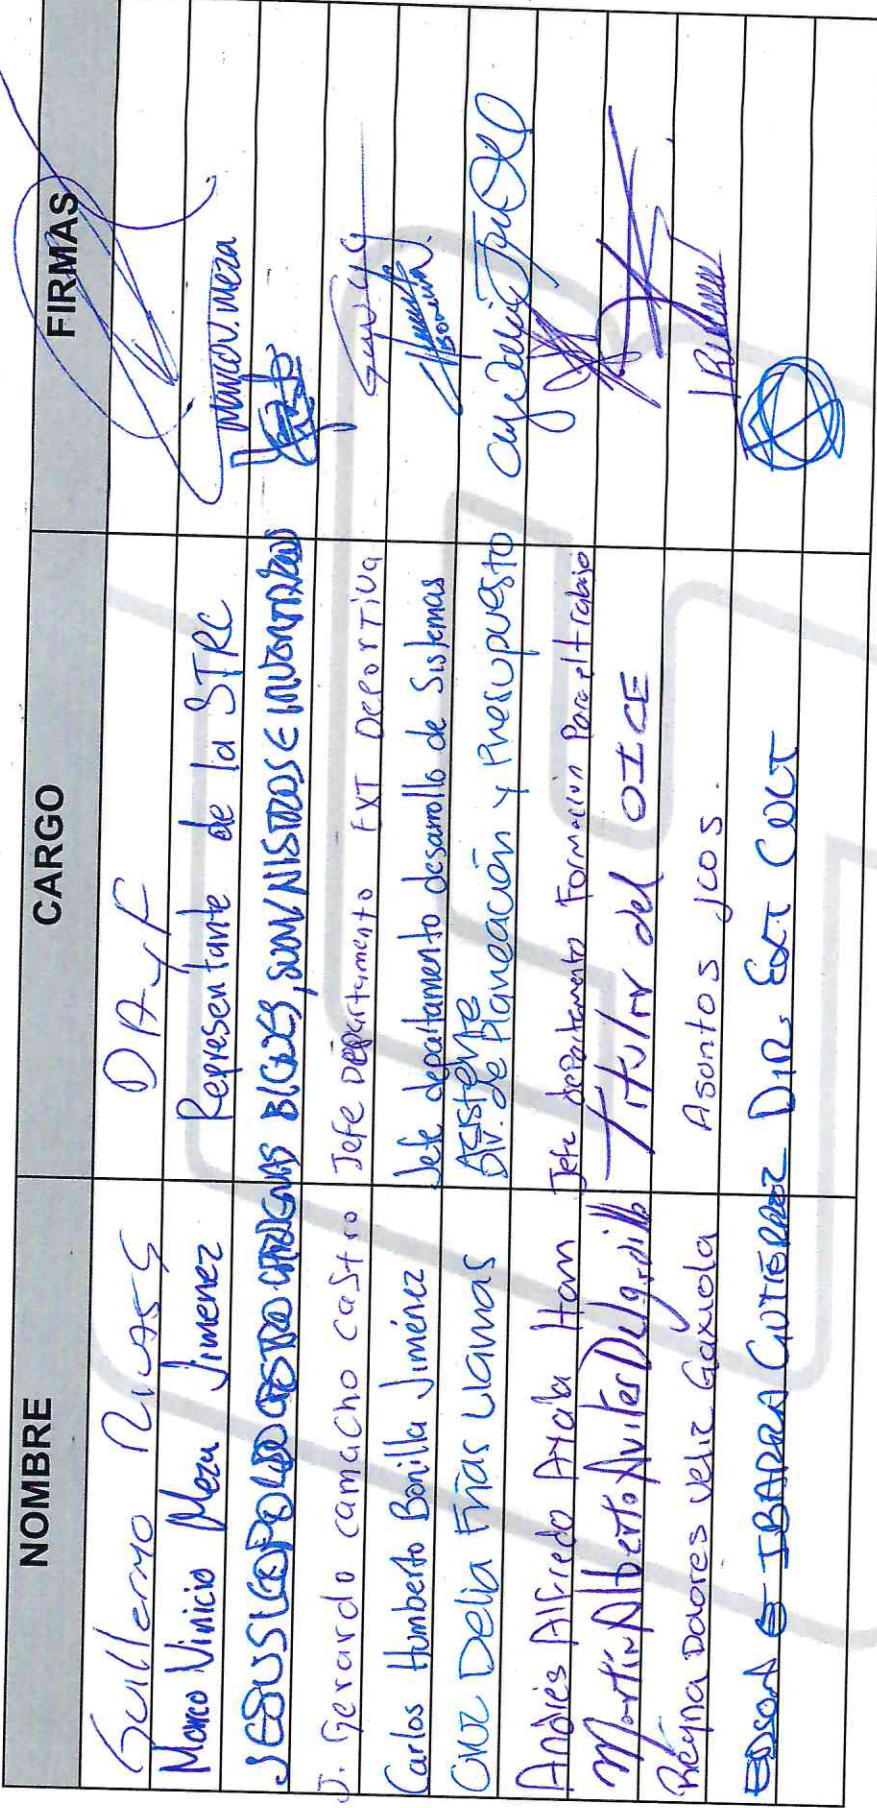 NOMBRE CARGO FIRMAS
Guillermo Rivas G DAyF
Marco Vinicio Meza Jimenez Representante de la STRC Marco V. Meza
JESUS LEOPOLDO CASTRO BIENES, SUMINISTROS E INVENTARIOS
J. Gerardo camacho castro Jefe Departamento EXT DEPORTIVA
Carlos Humberto Bonilla Jiménez Jefe departamento desarrollo de Sistemas
CRUZ Delia Frías Llamas Asistente Div. de Planeación y Presupuesto
Andrés Alfredo Ayala Ham Jefe departamento Formación Para el trabajo
Martín Alberto Aviles Delgadillo Titular del OICE
Reyna Dolores Veliz Gaxiola Asontos jcos.
EDSON E IBARRA GUTIÉRREZ DIR. EXT CULT